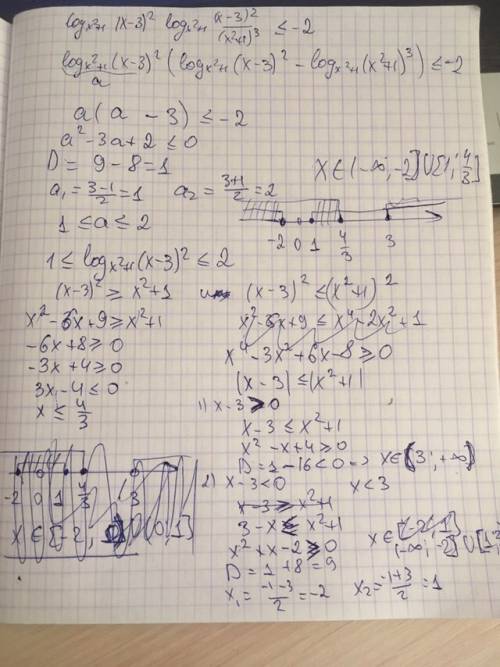 log_{x²+1} (x-3)² log_{x²+1} (x-3)²/(x²+1)³ ≤ -2
log_{x²+1} (x-3)² (log_{x²+1} (x-3)² - log_{x²+1} (x²+1)³) ≤ -2
a
a(a - 3) ≤ -2
a² - 3a + 2 ≤ 0
D = 9 - 8 = 1
a₁ = (3-1)/2 = 1 a₂ = (3+1)/2 = 2
x ∈ (-∞; -2] ∪ [1; 4/3]
1 ≤ a ≤ 2
-2 0 1 4/3 3
1 ≤ log_{x²+1} (x-3)² ≤ 2
(x-3)² ≥ x²+1 и (x-3)² ≤ (x²+1)²
x² - 6x + 9 ≥ x²+1
-6x + 8 ≥ 0
-3x + 4 ≥ 0
3x - 4 ≤ 0
x ≤ 4/3
x² - 6x + 9 ≤ x⁴ - 2x² + 1
x⁴ - 3x² + 6x - 8 ≥ 0
|x-3| ≤ |x²+1|
1) x - 3 ≥ 0
x - 3 ≤ x²+1
x² - x + 4 ≥ 0
D = 1 - 16 < 0 => x ∈ (3; +∞)
2) x - 3 < 0 x < 3
x - 3 ≥ x²+1
3 - x ≤ x²+1
x² + x - 2 ≥ 0
D = 1 + 8 = 9
x₁ = (-1-3)/2 = -2 x₂ = (-1+3)/2 = 1
x ∈ [-2; 1]
(-∞; -2] ∪ [1;
-2 0 1 4/3 3
x ∈ [-2,